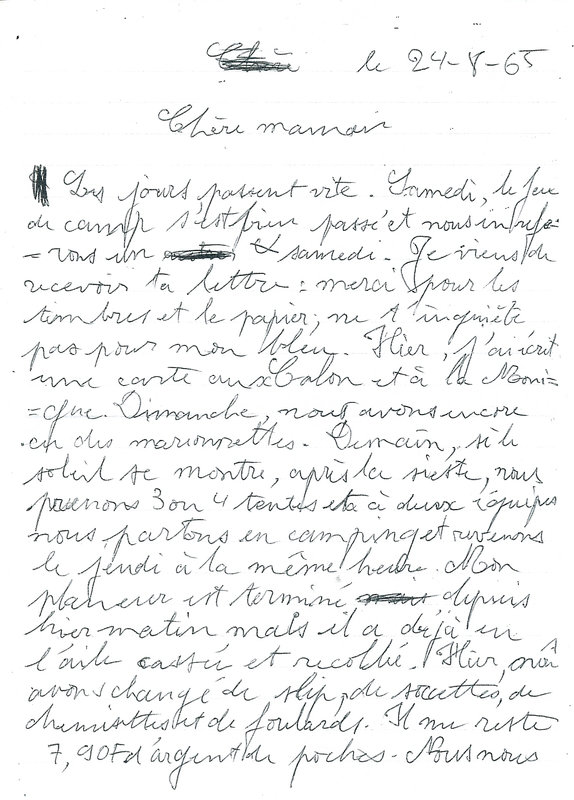 le 24-8-65
Chère maman
Les jours passent vite. Samedi, le feu
de camp s'est bien passé et nous en refe=
=rons un samedi. Je viens de
recevoir ta lettre : merci pour les
timbres et le papier, ne t'inquiète
pas pour mon bleu. Hier, j'ai écrit
une carte aux Calon et à la Moni=
=que. Dimanche, nous avons encore
eu des marionnettes. Demain, si le
soleil se montre, après la sieste, nous
prenons 3 ou 4 tentes et à deux équipes
nous partons en camping et revenons
le jeudi à la même heure. Mon
planeur est terminé depuis
hier matin mais il a déjà eu
l'aile cassée et recollée. Hier, on
avons changé de slip, de socettes, de
chemisettes et de foulards. Il me reste
7,90F d'argent de poches. Nous nous